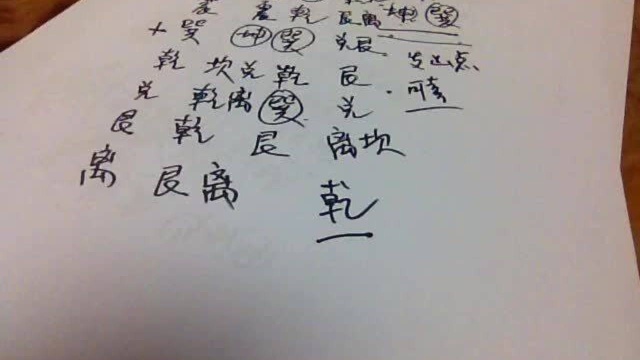 震 震乾 艮离坤巽
十巽 坤巽 兑艮
乾 坎兑乾 艮 发出点
兑 乾离巽 兑
艮 乾 艮 离坎
离 艮离 乾